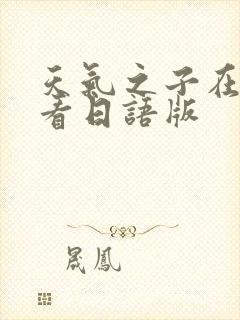 天氣之子在
看日語版
晟鳳